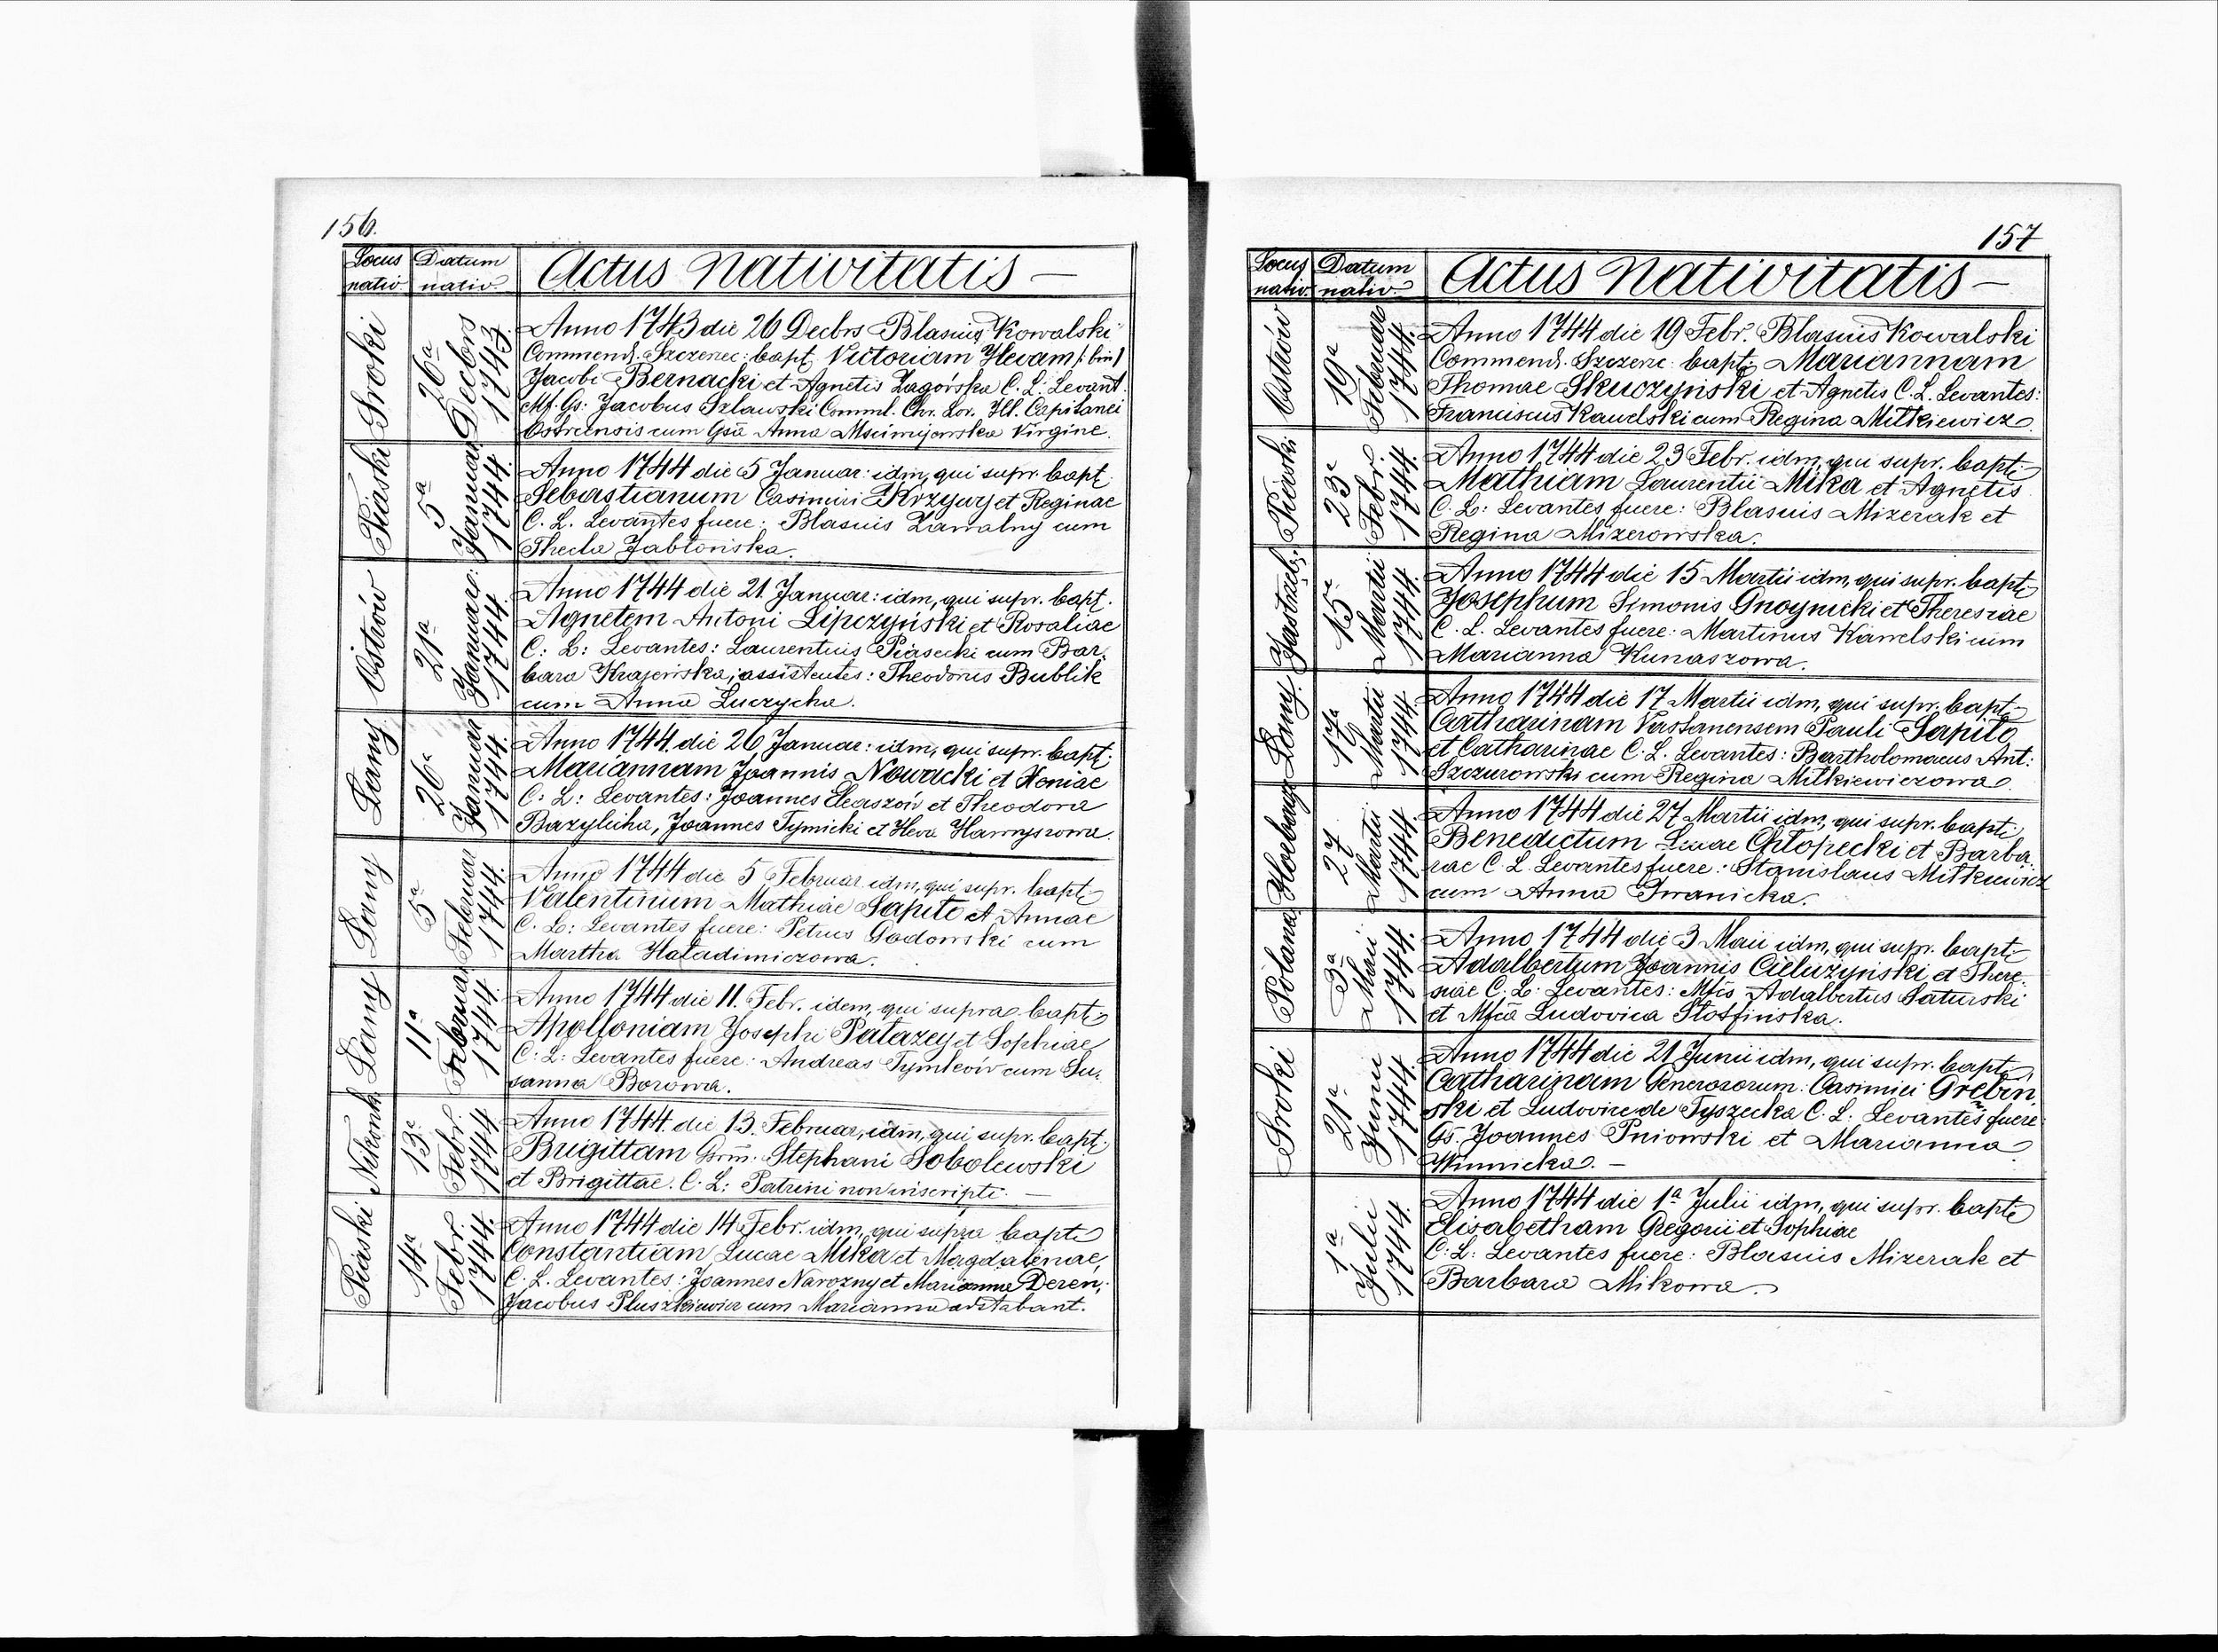 156.
Locus nativ.
Datum nativ.
Actus Nativitatis —
Sroki
26a Decbrs 1743.
Anno 1743 die 26 Decbrs Blasius Kowalski
Commend. Szczerzec: bapt. Victoriam Hevam /: bin /
Jacobi Bernacki et Agnetis Zagórska C. L: Levant.
Mf. Gs: Jacobus Szlawski Comml. Chr. Lov. Ill. Capitanei
cum Gsa Anna Virgine.
Piaski
5a Januar 1744.
Anno 1744 die 5 Januar: idm, qui supr. bapt.
Sebastianum Casimiri Krzywy et Reginae
C. L. Levantes fuere: Blasius Zawalny cum
Thecla Jabłońska.
Ostrów
21a Januar: 1744.
Anno 1744 die 21. Januar: idm, qui supr. bapt.
Agnetem Antoni Lipczyński et Rosaliae
C: L: Levantes: Laurentius Piasecki cum Bar,
bara Krajewska; assistentes: Theodorus Bublik
cum Anna Luczycha.
Łany
26a Januar 1744.
Anno 1744. die 26 Januar: idm, qui supr. bapt.
Mariannam Joannis Nowacki et Xeniae
C: L: Levantes: Joannes Eleaszów et Theodora
Bazylicha, Joannes Tymicki et Heva Hawryszowa.
Łany
5a Februar 1744.
Anno 1744 die 5 Februar idm, qui supr. bapt.
Valentinum Mathiae Sapito et Annae
C. L: Levantes fuere: Petrus Godowski cum
Martha Haładimiczowa.
Łany
11a Februar 1744.
Anno 1744 die 11. Febr. idem, qui supra bapt.
Apolloniam Josephi Patazey et Sophiae
C: L: Levantes fuere: Andreas Tymków cum Su,
sanna Borowa.
Nikonk
13a Febr. 1744
Anno 1744 die 13. Februar, idm, qui supr. bapt.
Brigittam Gsrm. Stephani Sobolewski
et Brigittae. C. L: Patrini non inscripti. —
Piaski
14a Febr. 1744.
Anno 1744 die 14 Febr. idm, qui supra bapt.
Constantiam Lucae Mika et Magdalenae,
C. L. Levantes: Joannes Narozny et Marianna Deren;
Jacobus Pluszkiewicz cum Marianna adstabant.
157
Locus nativ.
Datum nativ.
Actus Nativitatis —
Ostrów
19a Februar 1744.
Anno 1744 die 19 Febr. Blasius Kowalski
Commend. Szczerz: bapt. Mariannam
Thomae Skuczyński et Agnetis C. L. Levantes:
Franciscus Kawelski cum Regina Mitkiewicz.
Piaski
23a Febr. 1744
Anno 1744 die 23 Febr. idm, qui supr. bapt.
Mathiam Laurentii Mika et Agnetis
C. L: Levantes fuere: Blasius Mizerak et
Regina Mizerowska.
Jastrzęb:
15a Martii 1744.
Anno 1744 die 15 Martii idm, qui supr. bapt.
Josephum Simonis Gnoynicki et Theresiae
C. L. Levantes fuere: Martinus Kawelski cum
Marianna Kunaszowa.
Łany
17a Martii 1744.
Anno 1744 die 17 Martii idm, qui supr. bapt.
Catharinam Pauli Sapito
et Catharinae C. L. Levantes: Bartholomaeus Ant:
Szczurowski cum Regina Mitkiewiczowa.
Horbacze
27 Martii 1744
Anno 1744 die 27 Martii idm, qui supr. bapt.
Benedictum Lucae Chłopecki et Barba,
rae C. L. Levantes fuere: Stanislaus Mitkiewicz
cum Anna Iwanicka.
Polana
3a Maii 1744.
Anno 1744 die 3 Maii idm, qui supr. bapt.
Adalbertum Joannis Cieluzyński et There,
siae C. L. Levantes: Mfcs Adalbertus Saturski
et Mfca Ludovica Stosfińska.
Sroki
21a Junii 1744.
Anno 1744 die 21 Junii idm, qui supr. bapt.
Catharinam Generosorum: Casimiri Grebin,
ski et Ludovice de Tyszecka C. L. Levantes fuere
Gs. Joannes Pniowski et Marianna
Winnicka. —
1a Julii 1744.
Anno 1744 die 1a Julii idm, qui supr. bapt.
Elisabetham Gregorii et Sophiae
C: L: Levantes fuere: Blasius Mizerak et
Barbara Mikowa.